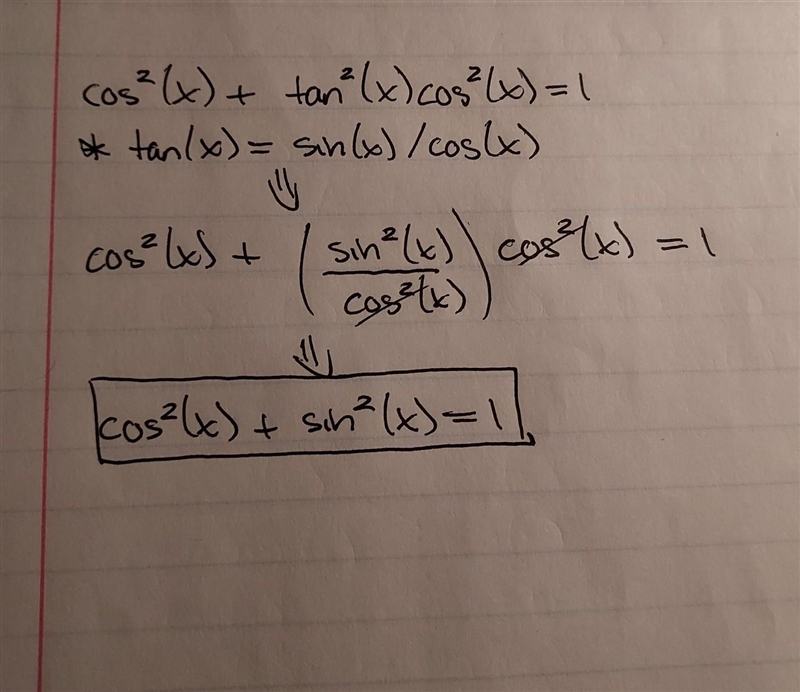 cos²(x) + tan²(x)cos²(x) = 1
* tan(x) = sin(x)/cos(x)
⇓
cos²(x) + (sin²(x)/cos²(x)) cos²(x) = 1
⇓
cos²(x) + sin²(x) = 1,